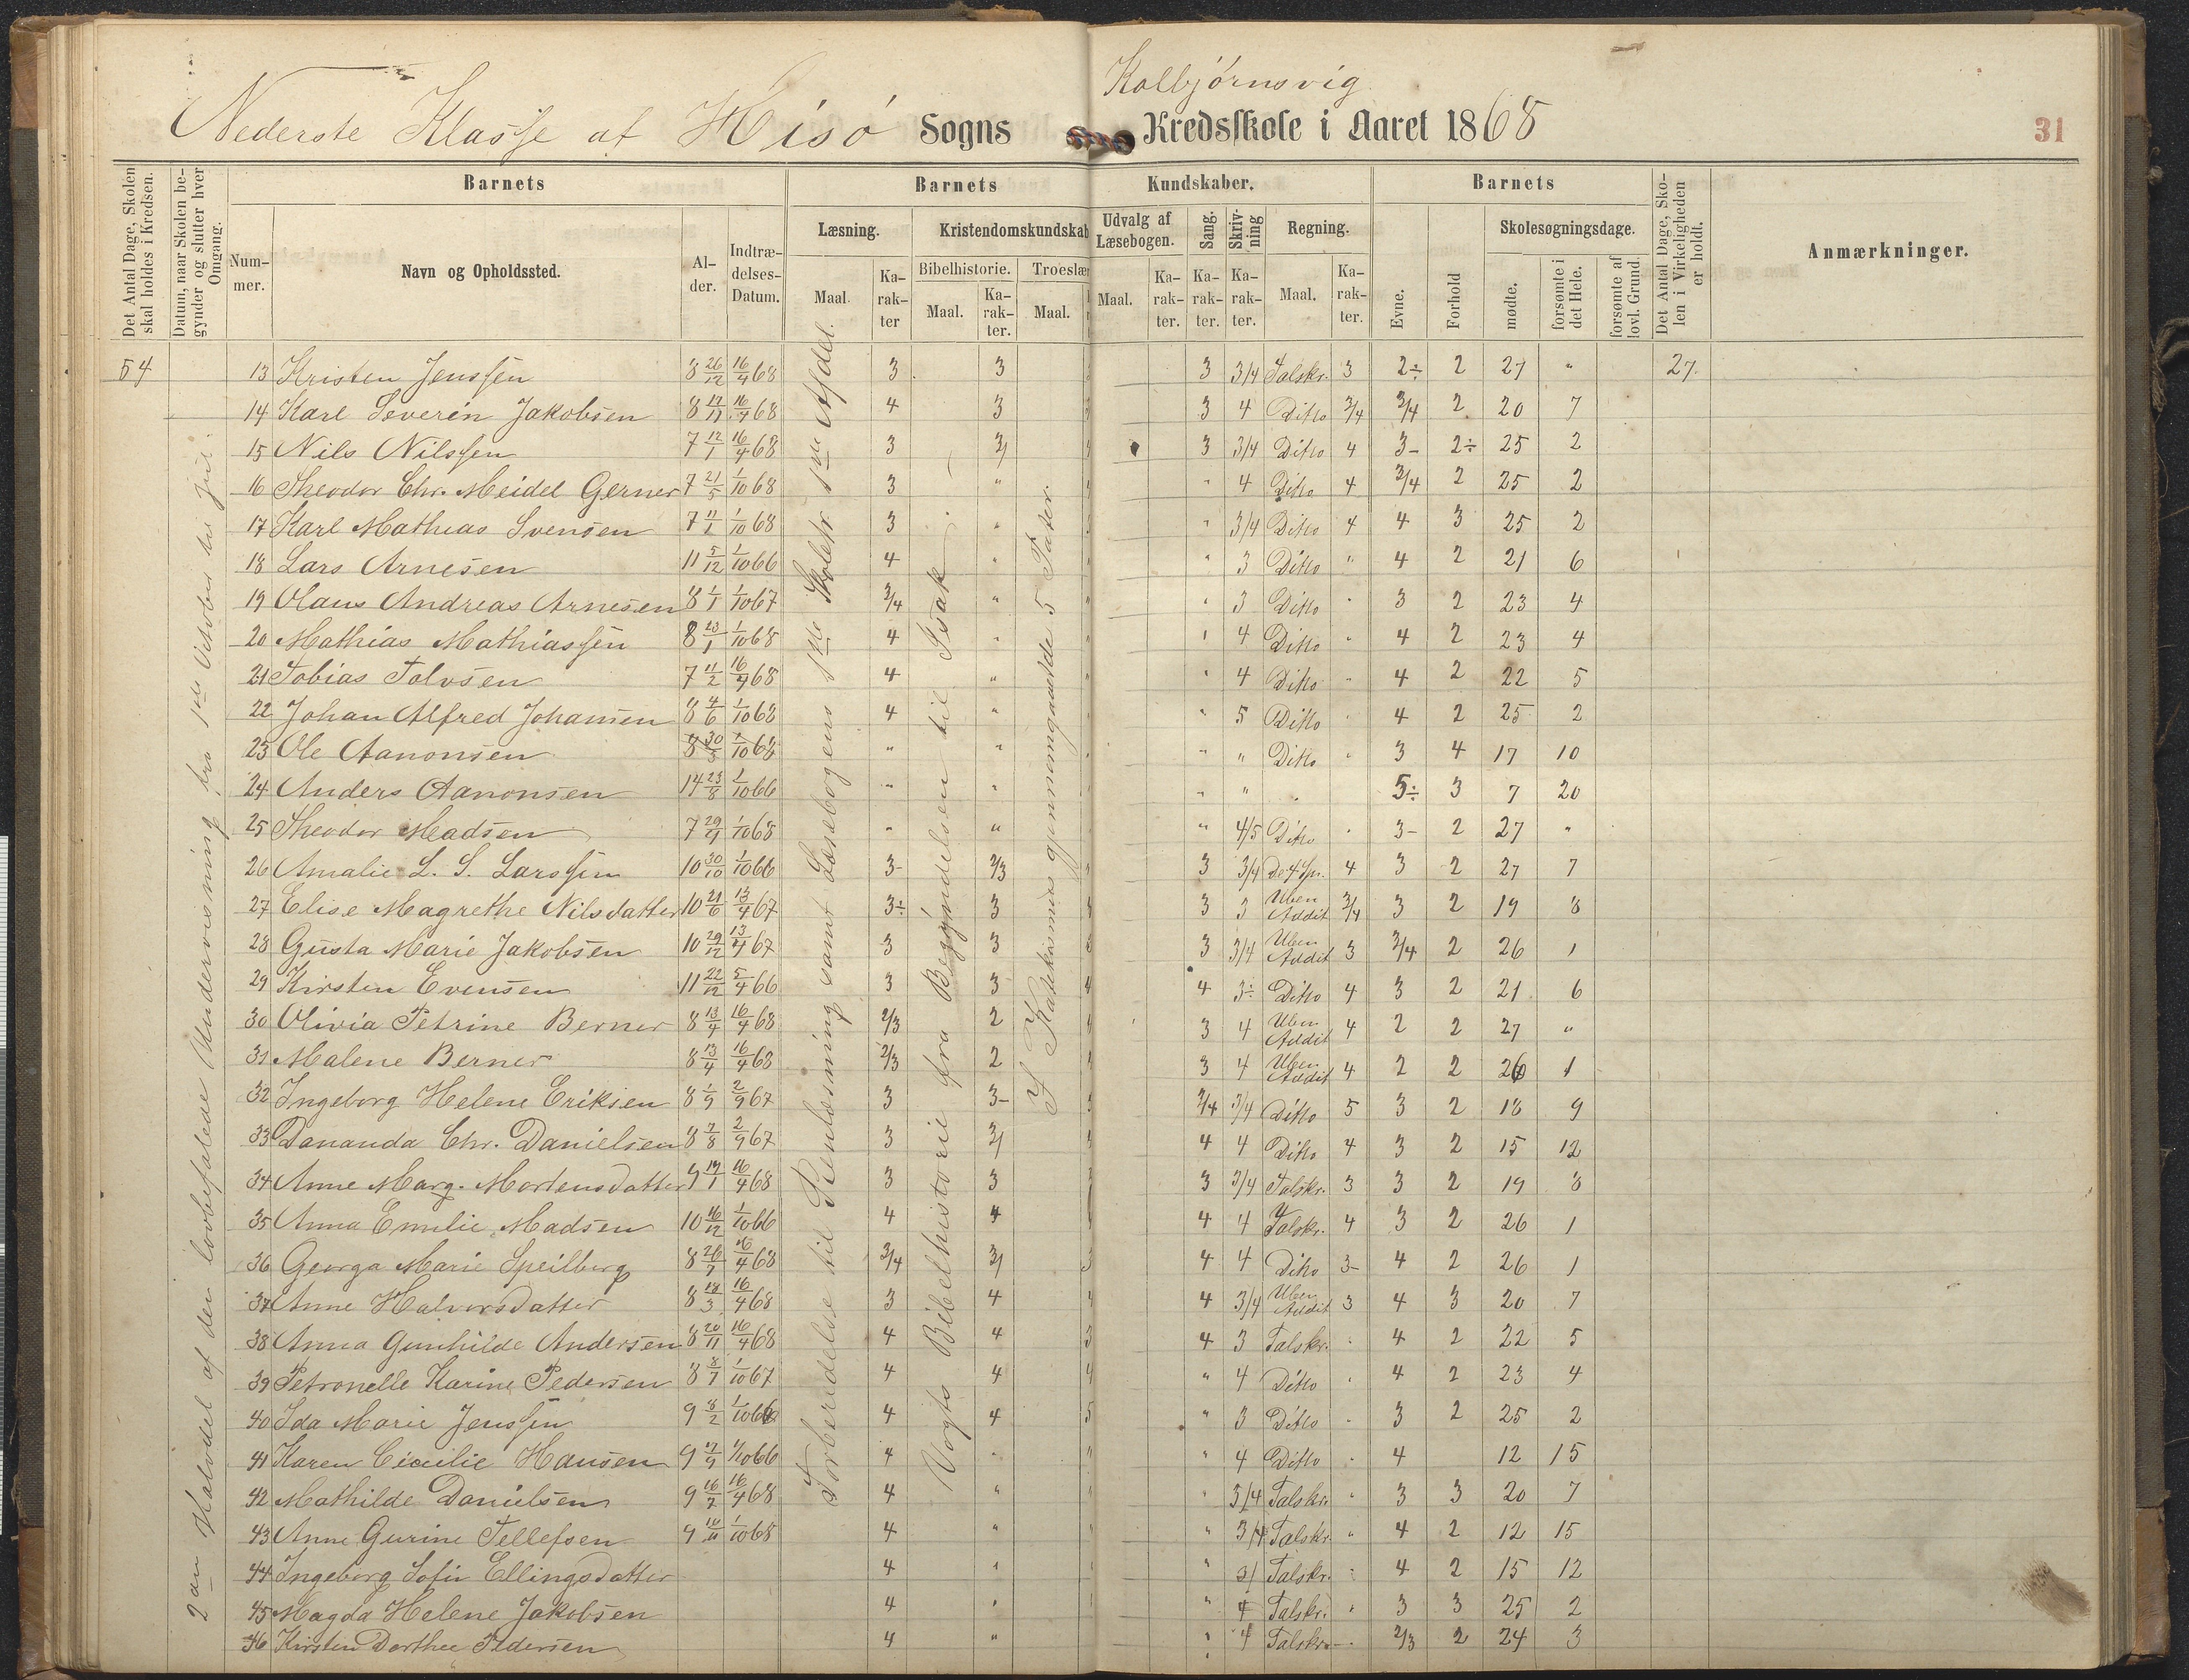 Kolbjörnsvig
Nederste Klasse af Hisö Sogns Kredsskole i Aaret 1868
31
Det Antal Dage, Skolen skal holdes i Kredsen.
Datum, naar Skolen begynder og slutter hver Omgang.
Barnets
Barnets
Kundskaber.
Barnets
Det Antal Dage, Skolen i Virkeligheden er holdt.
Anmærkninger.
Nummer.
Navn og Opholdssted.
Alder.
Indtrædelses-Datum.
Læsning.
Kristendomskundskab
Udvalg af Læsebogen.
Sang.
Skrivning
Regning.
Evne.
Forhold
Skolesøgningsdage.
Maal.
Karakter
Bibelhistorie.
Troeslær
Maal.
Karakter.
Maal.
Maal.
Karakter.
Karakter.
Karakter.
Maal.
Karakter.
mødte.
forsømte i det Hele.
forsømte af lovl. Grund.
2den Halvdel af den lovbefalede Undervisning fra 1ste October til Jul.
Forberedelse til Renlæsning samt Læsebogens 1ste Skoletr. 1ste Afdel.
Vogts Bibelhistorie fra Begyndelsen til Isak
I Katekismus gjennemgaaede 5 Parter.
54 13 Kristen Jenssen 8 26/12 16/4 68 3 3 3 3/4 Talskr. 3 2÷ 2 27 " 27.
14 Karl Severin Jakobsen 8 17/11 16/4 68 4 3 3 4 Ditto 3/4 3/4 2 20 7
15 Nils Nilssen 7 12/1 16/4 68 3 3/ 3 3/4 Ditto 4 3- 2÷ 25 2
16 Theodor Chr. Meidel Gerner 7 21/5 1/10 68 3 " " 4 Ditto 4 3/4 2 25 2
17 Karl Mathias Svensen 7 11/1 1/10 68 3 " " 3/4 Ditto 4 4 3 25 2
18 Lars Arnesen 11 5/12 1/10 66 4 " " 3 Ditto " 4 2 21 6
19 Olaus Andreas Arnesen 8 1/1 1/10 67 3/4 " " 3 Ditto " 3 2 23 4
20 Mathias Mathiassen 8 23/1 1/10 68 4 " " 4 Ditto " 4 2 23 4
21 Tobias Talvsen 7 11/2 16/4 68 4 " " 4 Ditto " 4 2 22 5
22 Johan Alfred Johansen 8 4/6 1/10 68 4 " " 5 Ditto " 4 2 25 2
23 Ole Aanonsen 8 30/3 1/10 68 " " " " Ditto " 3 4 17 10
24 Anders Aanonsen 14 23/8 1/10 66 " " " " 5÷ 3 7 20
25 Theodor Madsen 7 29/4 1/10 68 " " " 4/5 Ditto " 3- 2 27 "
26 Amalie L. S. Larssen 10 30/10 1/10 66 3- 2/3 3 3/4 De 4 Sp. 4 3 2 27 7
27 Elise Magrethe Nilsdatter 10 21/6 13/4 67 3÷ 3 3 3 Uben Addit 3/4 3 2 19 8
28 Gusta Marie Jakobsen 10 29/12 13/4 67 3 3 3 3/4 Uben Addit 3 3/4 2 26 1
29 Kirsten Evensen 11 22/12 5/4 66 3 3 4 3÷ Ditto 4 3 2 21 6
30 Olivia Petrine Berner 8 13/4 16/4 68 2/3 2 3 4 Uben Addit 4 2 2 27 "
31 Malene Berner 8 13/4 16/4 68 2/3 2 3 4 Uben Addit 4 2 2 26 1
32 Ingeborg Helene Eriksen 8 1/9 2/9 67 3 3- 3/4 3/4 Ditto 5 3 2 18 9
33 Dananda Chr. Danielsen 8 7/8 2/9 67 3 3/ 4 4 Ditto 4 3 2 15 12
34 Anne Marg. Mortensdatter 9 19/1 16/4 68 3 3 3 3/4 Talskr. 3 3 2 19 8
35 Anna Emilie Madsen 10 16/12 1/10 66 4 4 4 4 Talskr. 4 3 2 26 1
36 Georga Marie Speilberg 8 26/7 16/4 68 3/4 3/ 4 4 Ditto 3- 4 2 26 1
37 Anne Halvorsdatter 8 28/3 16/4 68 3 4 4 3/4 Uben Addit 3 4 3 20 7
38 Anna Gunhilde Andersen 8 20/11 16/4 68 4 4 4 3 Talskr. " 4 2 22 5
39 Petronelle Karine Pedersen 8 8/7 1/10 67 4 4 " 4 Ditto " 4 2 23 4
40 Ida Marie Jenssen 9 8/2 1/10 66 4 4 " 3 Ditto " 3 2 25 2
41 Karen Cicilie Hansen 9 17/9 1/10 66 4 " " 4 Ditto " 4 12 15
42 Mathilde Danielsen 9 16/7 16/4 68 4 " " 3/4 Talskr. " 3 3 20 7
43 Anne Gurine Tellefsen 9 10/11 1/10 68 4 " " 3/4 Talskr. " 4 2 12 15
44 Ingeborg Sofie Ellingsdatter 4 " " 3/ Talskr. " 4 2 15 12
45 Magda Helene Jakobsen 4 " " 4 Talskr. " 3 3 25 2
46 Kirsten Dorthee Pedersen 4 " " 4 Talskr. " 2/3 2 24 3